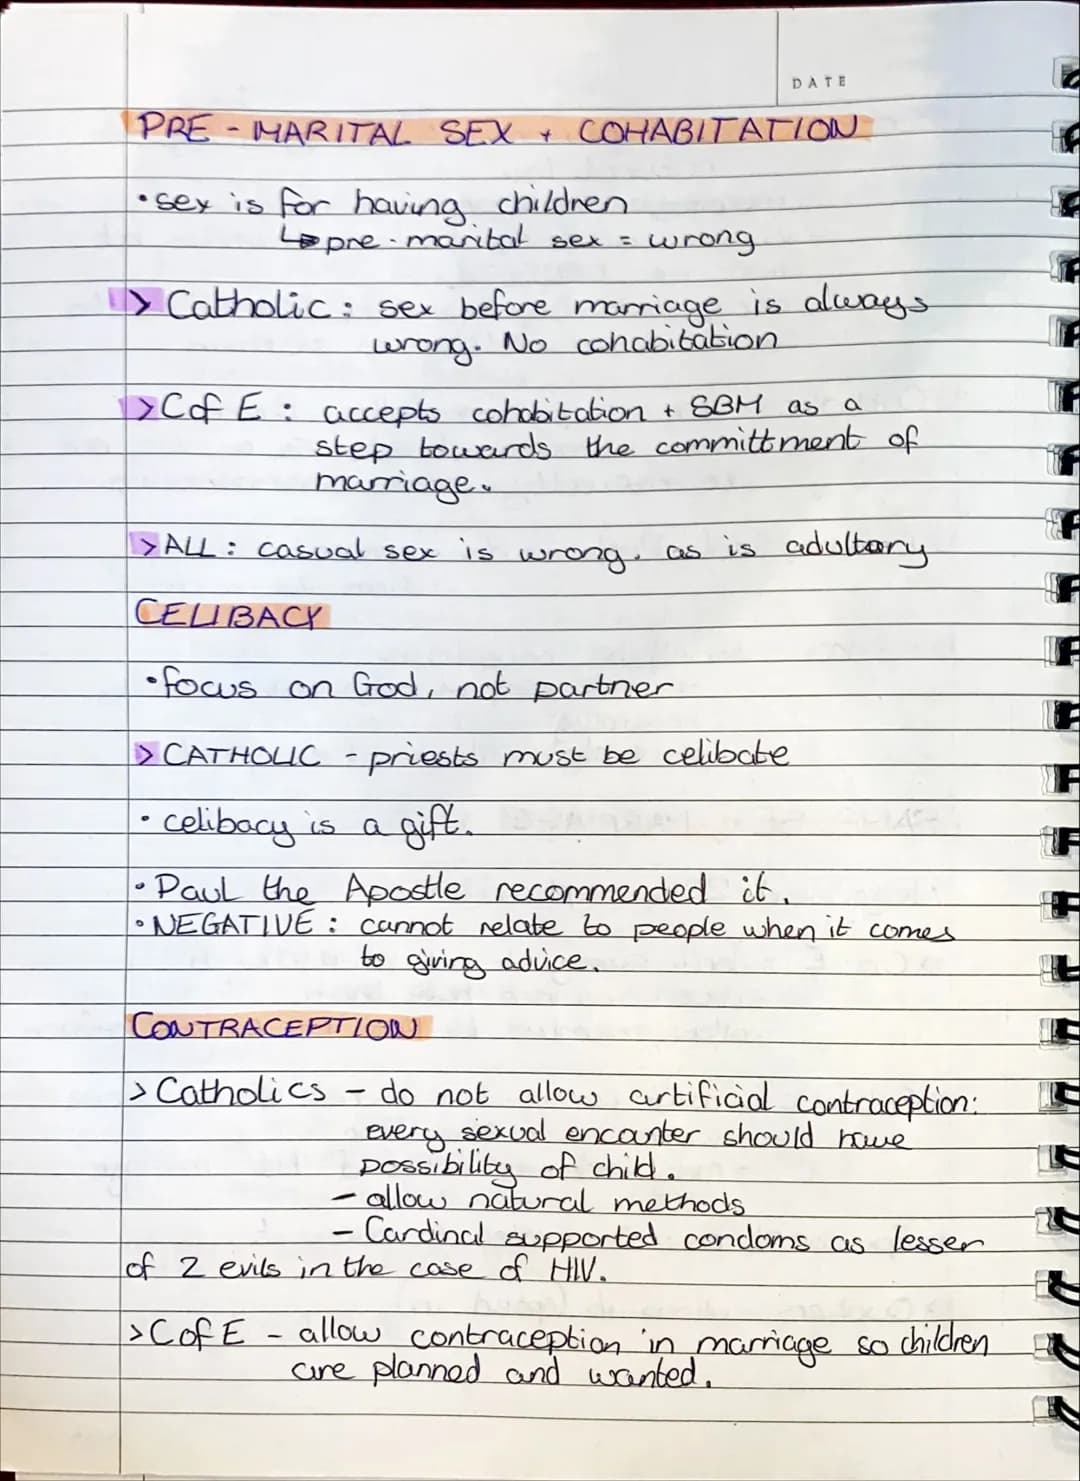 DATE
PRE - MARITAL SEX + COHABITATION
• sex is for having children
↳ pre-marital sex = wrong
> Catholic : sex before marriage is always
wrong. No cohabitation
> C of E : accepts cohabitation + SBM as a
step towards the committment of
marriage.
> ALL : casual sex is wrong. as is adultary
CELIBACY
• focus on God, not partner
> CATHOLIC - priests must be celibate
• celibacy is a gift.
• Paul the Apostle recommended it.
• NEGATIVE : cannot relate to people when it comes
to giving advice.
CONTRACEPTION
> Catholics - do not allow artificial contraception:
every sexual encanter should have
possibility of child.
- allow natural methods
- Cardinal supported condoms as lesser
of 2 evils in the case of HIV.
> C of E - allow contraception in marriage so children
are planned and wanted.